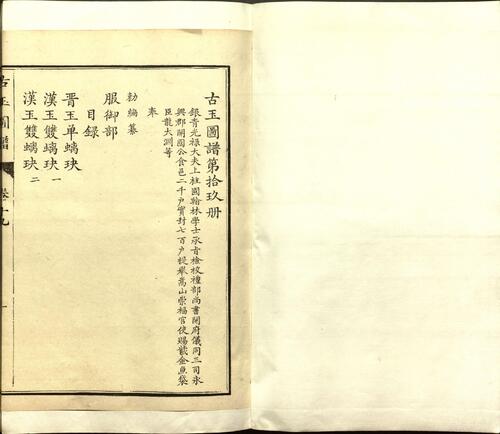 古玉圖譜第拾玖册
銀青光祿大夫上柱國翰林學士承旨檢校禮部尚書開府儀同三司永
興郡開國公食邑二千户實封七百户提舉嵩山崇福宫使賜紫金魚袋
臣龍大淵等
奉
勅編纂
服御部
目録
晋玉单螭玦
漢玉雙螭玦一
漢玉雙螭玦二
古玉圖譜
卷十九
一